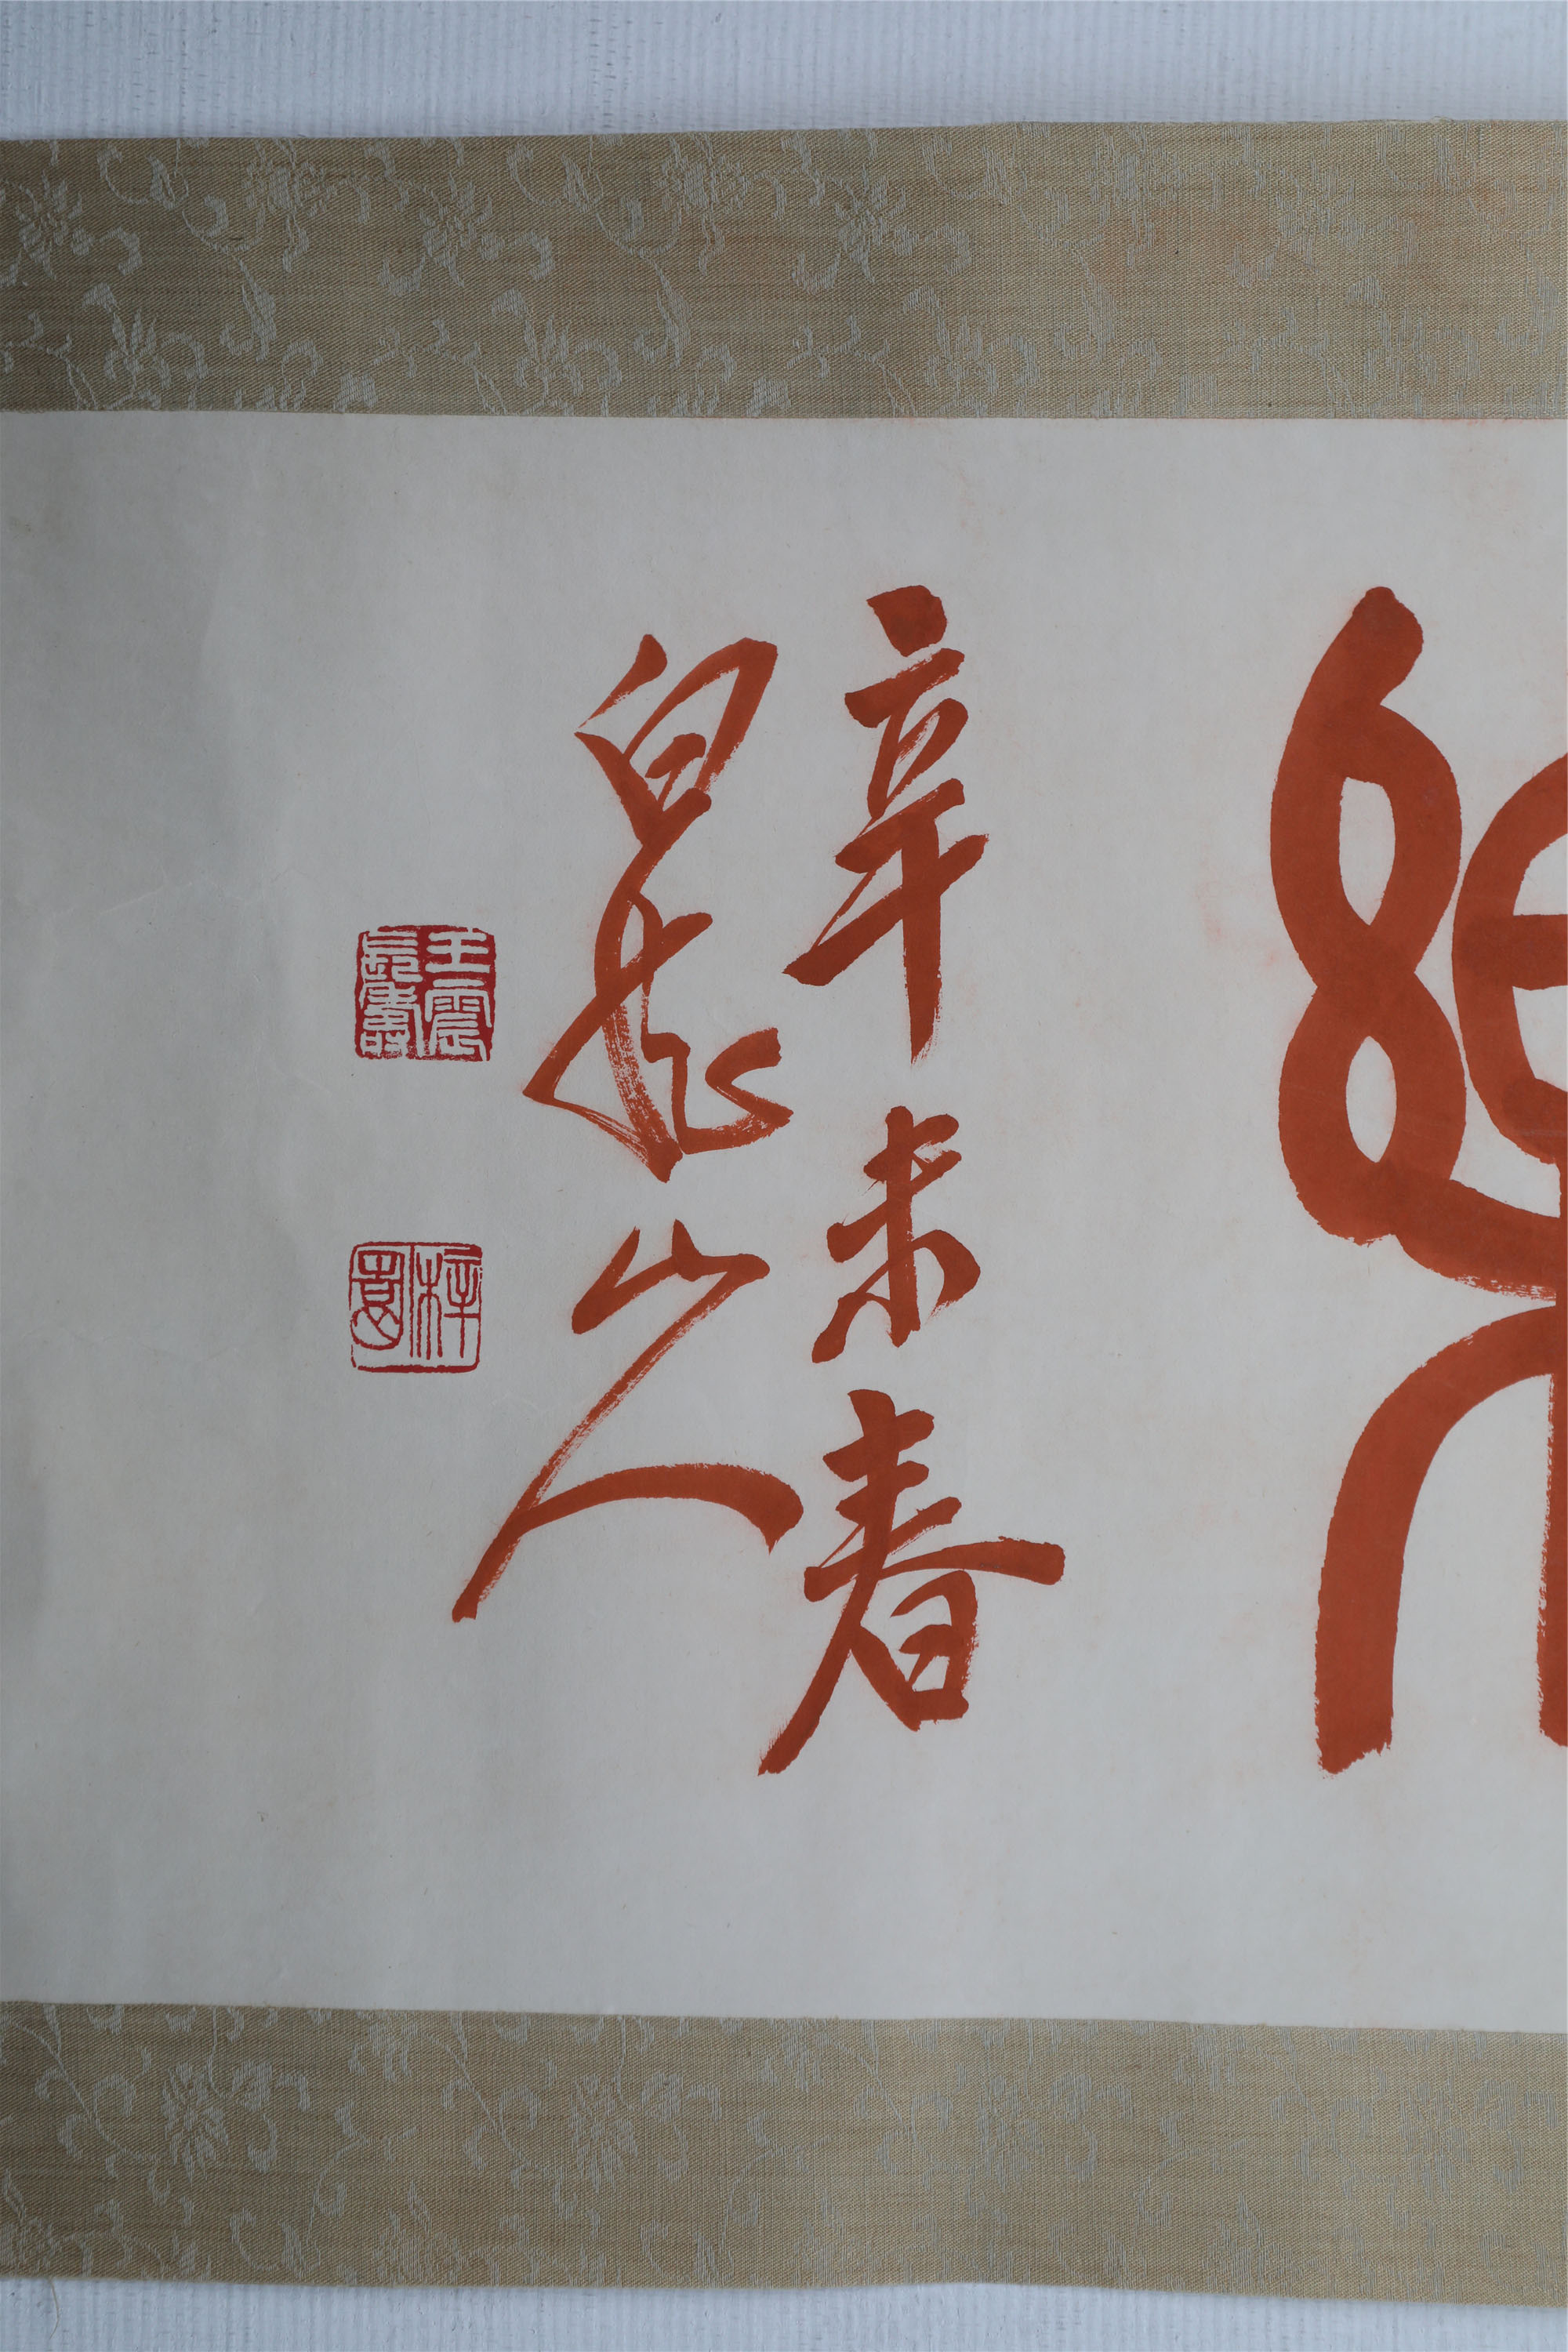 辛未春
白龍山人
王震長壽
梓園